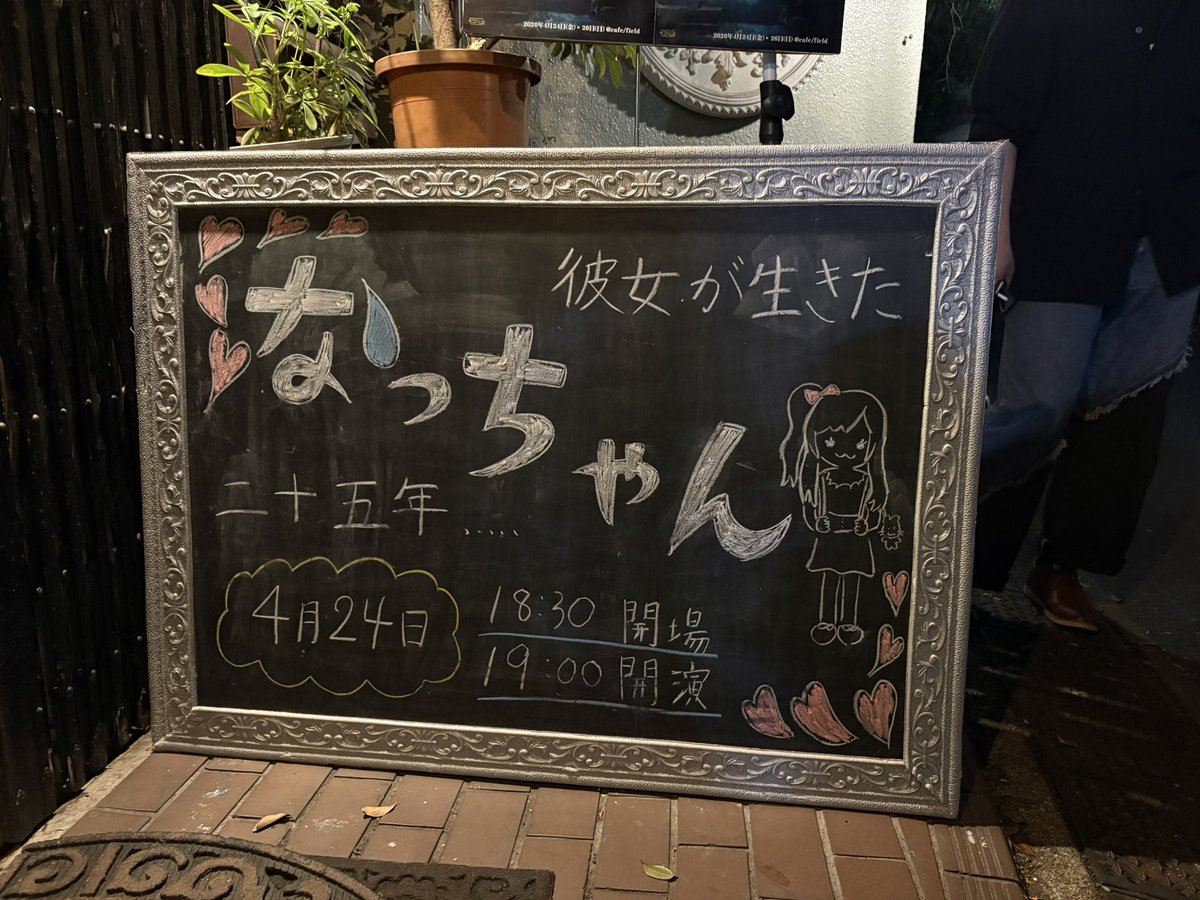 2026年4月24日(金)▸26日(日) @cafe/field
2026年4月24日(金)▸26日(日) @cafe/field
彼女が生きた
なっちゃん
二十五年……
4月24日
18:30 開場
19:00 開演